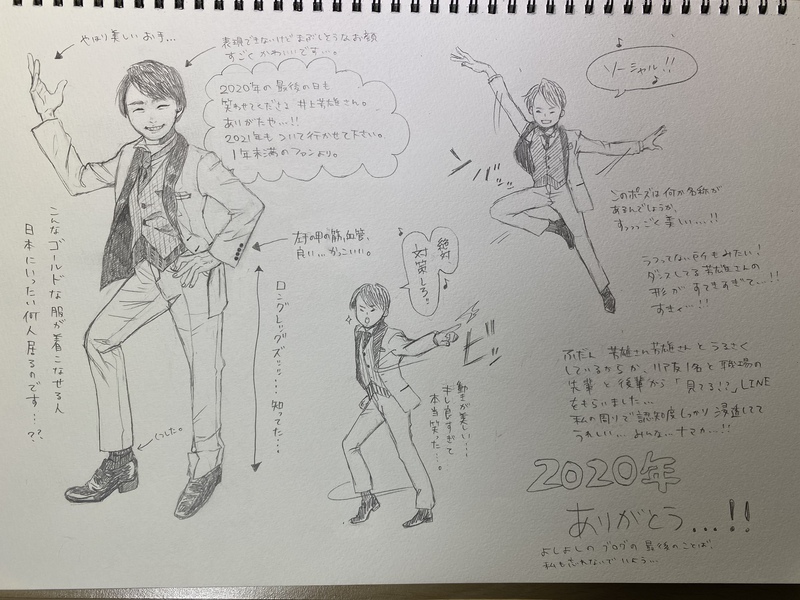 やはり美しいお手...
表現できないけどまぶしそうなお顔
すごくかわいいです...。
2020年の最後の日も
笑わせてくださる 井上芳雄さん。
ありがたや...!!
2021年も ついて行かせて下さい。
1年未満のファンより。
♪
ソーシャル!!
♪
このポーズは何か名称が
あるんでしょうか。
すっっごく美しい...!!
うつってないとこもみたい!
ダンスしてる芳雄さんの
形がすてきすぎて...!!
すきだ...!!
左手の甲の筋、血管、
良い...かっこいい。
こんなゴールドな服が着こなせる人
日本にいったい何人居るのです...??
ロングレッグズッッ...知ってた...
♪
絶対
対策しろ。
♪
ビシ
動きが美しい...
キレ良すぎて
本当笑った...。
くつした。
ふだん 芳雄さん芳雄さん とうるさく
しているからか、リア友1名と 職場の
先輩と後輩から「見てる!?」LINE
をもらいました...
私の周りで認知度しっかり浸透してて
うれしい... みんな、ナマカ...!!
2020年
ありがとう...!!
よしよしの ブログの 最後のことば、
私も忘れないで いよう...